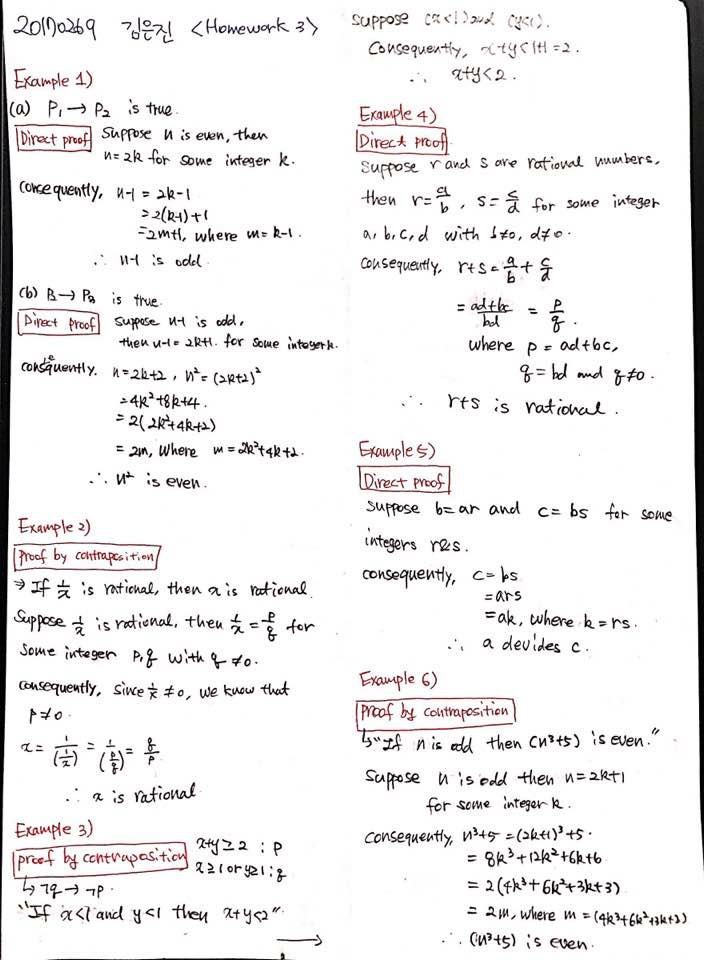 20170269 김은진 <Homework 3>
Example 1)
(a) P₁ → P₂ is true.
Direct proof Suppose n is even, then
n=2k for some integer k.
consequently, n-1 = 2k-1
=2(k-1)+1
=2m+1, where m=k-1.
∴ n-1 is odd.
(b) P₂ → P₃ is true.
Direct proof Suppose n-1 is odd,
then n-1=2k+1. for some integer k.
consequently. n=2k+2, n²=(2k+2)²
=4k²+8k+4.
=2(2k²+4k+2)
=2m, where m=2k²+4k+2.
∴ n² is even.
Example 2)
proof by contraposition
⇒ If 1/x is rational, then x is rational.
Suppose 1/x is rational, then 1/x = p/q for
some integer p,q with q≠0.
consequently, since 1/x ≠0, we know that
p≠0.
x = 1/(1/x) = 1/(p/q) = q/p
∴ x is rational
Example 3)
proof by contraposition x+y≥2 : p
x≥1 or y≥1 : q
↳ ¬q → ¬p.
"If x<1 and y<1 then x+y<2"
→
suppose (x<1) and (y<1).
Consequently, x+y<1+1=2.
∴ x+y<2.
Example 4)
Direct proof
Suppose r and s are rational numbers,
then r=a/b, s=c/d for some integer
a,b,c,d with b≠0, d≠0.
consequently, r+s=a/b+c/d
=ad+bc/bd = p/q.
where p=ad+bc,
q=bd and q≠0.
∴ r+s is rational.
Example 5)
Direct proof
suppose b=ar and c=bs for some
integers r&s.
consequently, c=bs
=ars
=ak, where k=rs.
∴ a devides c.
Example 6)
proof by contraposition
↳ "If n is odd then (n³+5) is even."
Suppose n is odd then n=2k+1
for some integer k.
consequently, n³+5=(2k+1)³+5.
= 8k³+12k²+6k+6
= 2(4k³+6k²+3k+3)
= 2m, where m=(4k³+6k²+3k+3)
∴ (n³+5) is even.